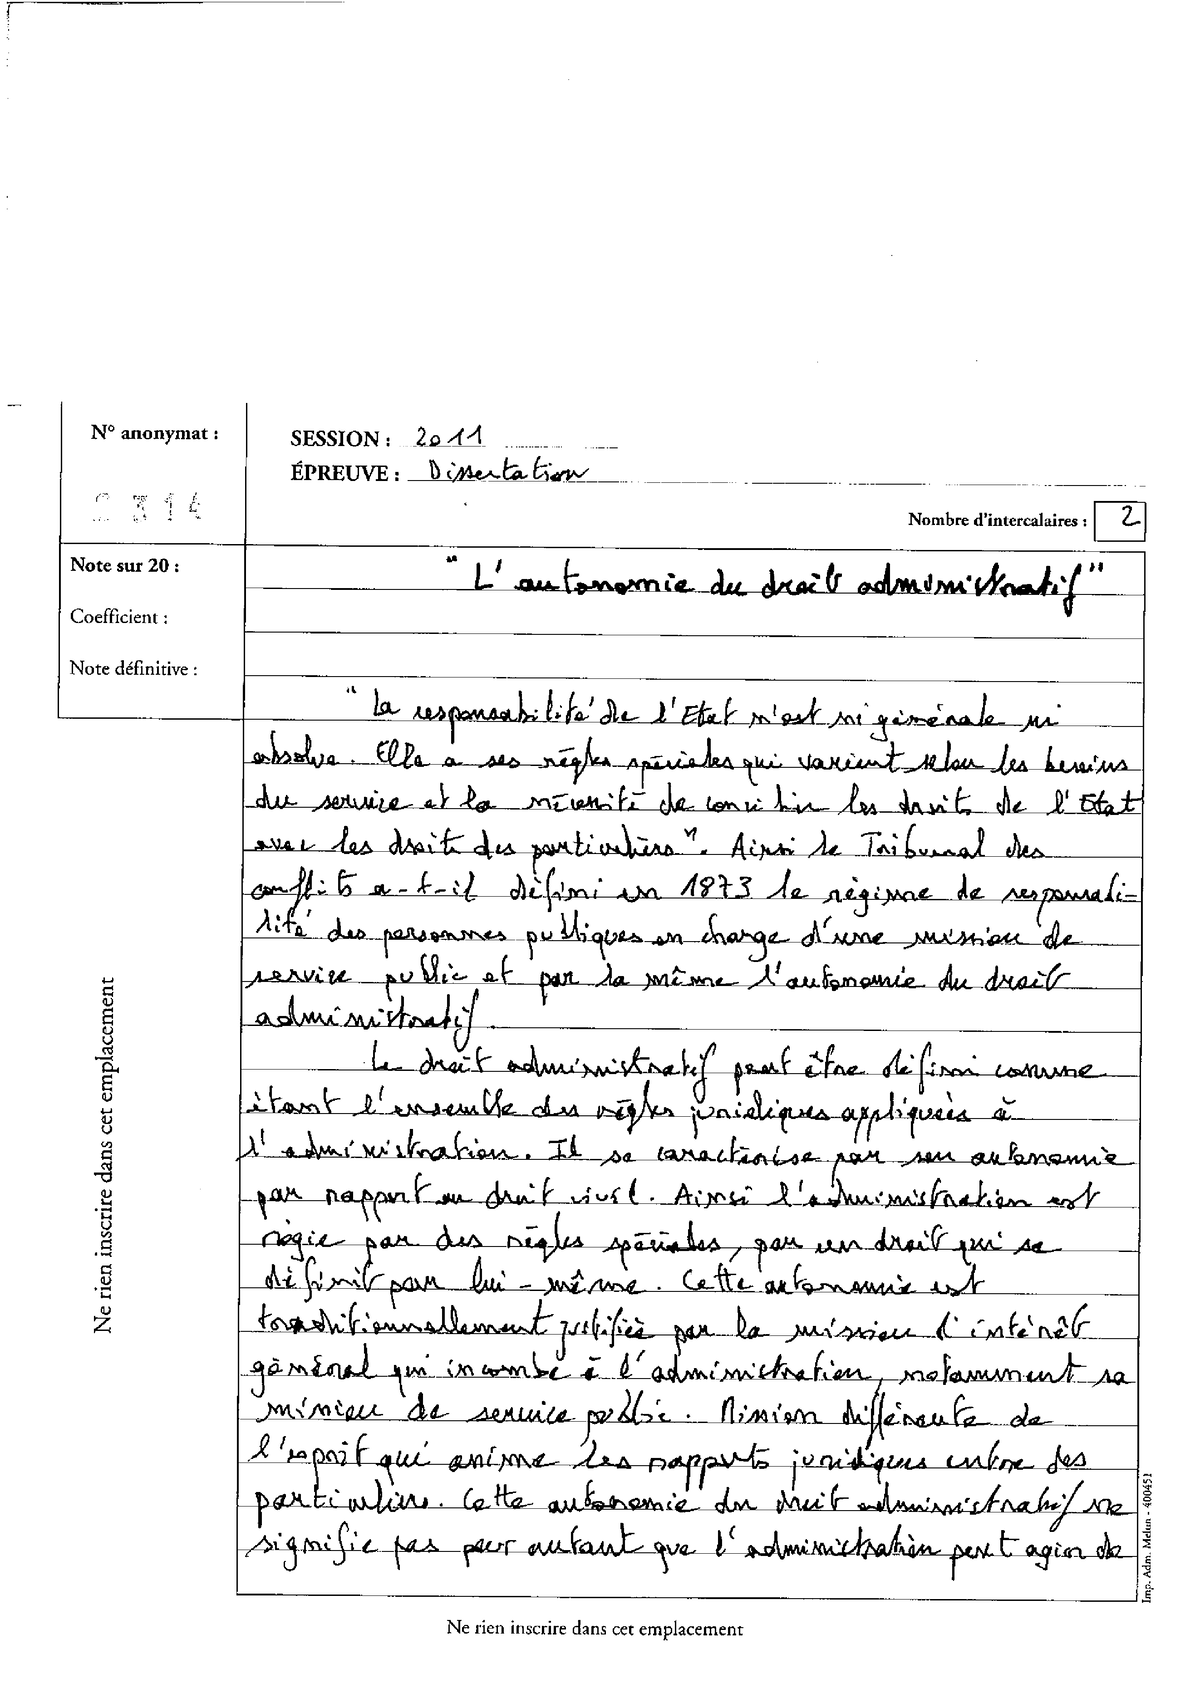 N° anonymat :
SESSION : 2011
ÉPREUVE : Dissertation
2314
Nombre d'intercalaires : 2
Note sur 20 :
Coefficient :
Note définitive :
"L'autonomie du droit administratif"
"La responsabilité de l'Etat n'est ni générale ni
absolue. Elle a ses règles spéciales qui varient selon les besoins
du service et la nécessité de concilier les droits de l'Etat
avec les droits des particuliers". Ainsi le Tribunal des
conflits a-t-il défini en 1873 le régime de responsabi-
lité des personnes publiques en charge d'une mission de
service public et par la même l'autonomie du droit
administratif.
Le droit administratif peut être défini comme
étant l'ensemble des règles juridiques appliquées à
l'administration. Il se caractérise par son autonomie
par rapport au droit civil. Ainsi l'administration est
régie par des règles spéciales, par un droit qui se
définit par lui-même. Cette autonomie est
traditionnellement justifiée par la mission d'intérêt
général qui incombe à l'administration, notamment sa
mission de service public. Mission différente de
l'esprit qui anime les rapports juridiques entre des
particuliers. Cette autonomie du droit administratif ne
signifie pas pour autant que l'administration peut agir de
Ne rien inscrire dans cet emplacement
Imp. Adm. Melun - 400451
Ne rien inscrire dans cet emplacement